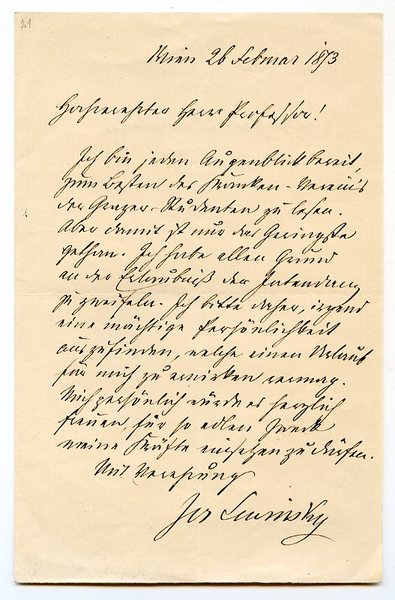 21
Wien 26 Februar 1873
Hochverehrter Herr Professor!
Ich bin jeden Augenblick bereit,
zum Besten des Kranken-Vereins
der Grazer-Studenten zu lesen.
Aber damit ist nur das Geringste
gethan. Ich habe allen Grund
an der Erlaubniß der Intendanz
zu zweifeln. Ich bitte daher, irgend
eine mächtige Persönlichkeit
auszufinden, welche einen Urlaub
für mich zu erwirken vermag.
Mich persönlich würde es herzlich
freuen, für so edlen Zweck
meine Kräfte einsetzen zu dürfen.
Mit Verehrung
Jos Lewinsky